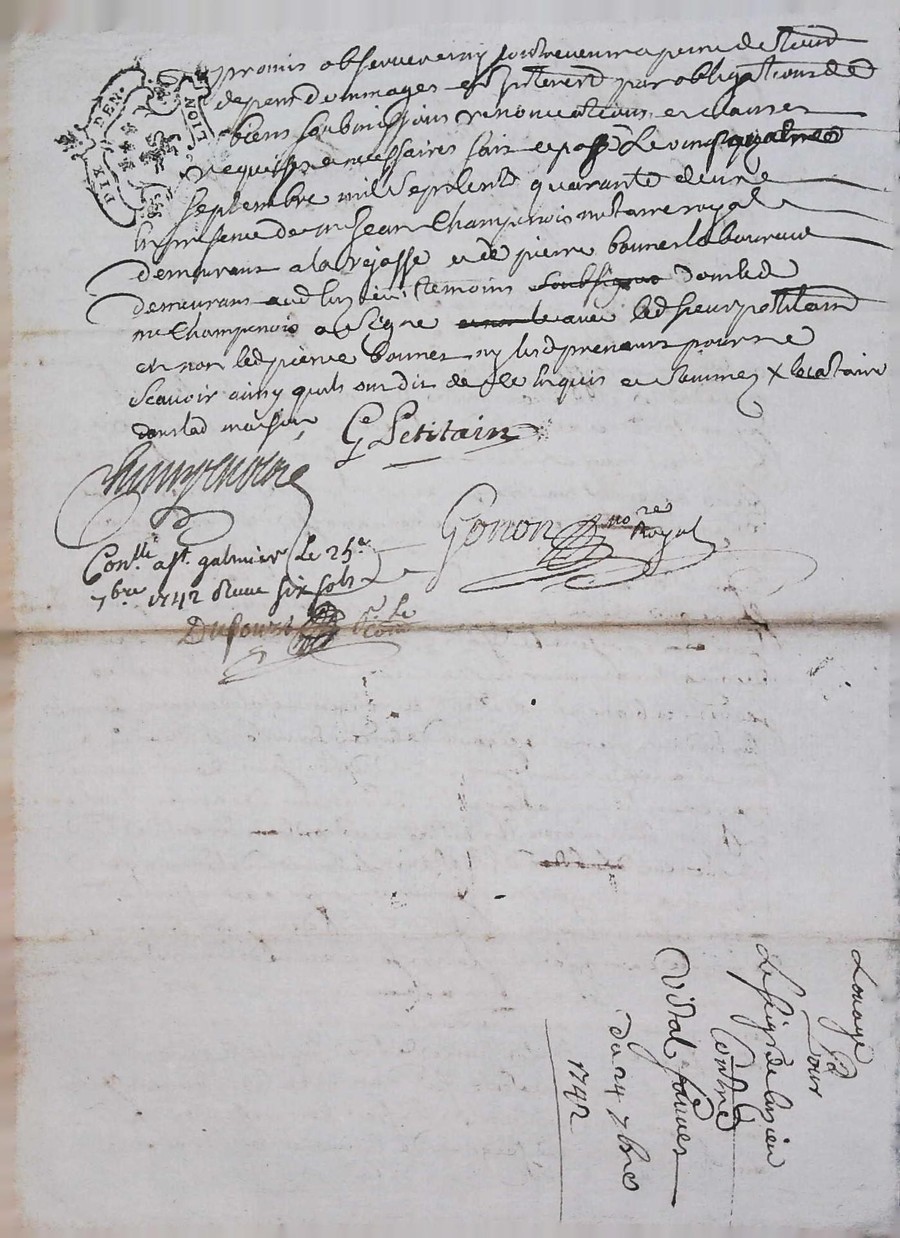 DIX DEN. LION
promis observer et ny contrevenir a peine de tous
depens dommages et interests par obligations de
biens soubmissions renonciations et clauses
requises et necessaires fait et passé Le vingt quatre
septembre mil sept cents quarante deux
En presence de me Jean Champenois notaire royal
demeurant a la et de pierre bonnet laboureur
demeurant aud temoins soubsigne dont led
me Champenois a signe avec led sieur petitain
et non led pierre bonnet ny lesd preneurs pour ne
scavoir ainsy quils ont dit de ce Enquis et sommez X
dans lad maison
G Petitain
Champenois
Gonon nore Royal
Conllé a st galmier Le 25e
7bre 1742 Receu six sols
Dufour
Louage
pour
Le seigr de
Contre
Vidal
du 24 7bre
1742